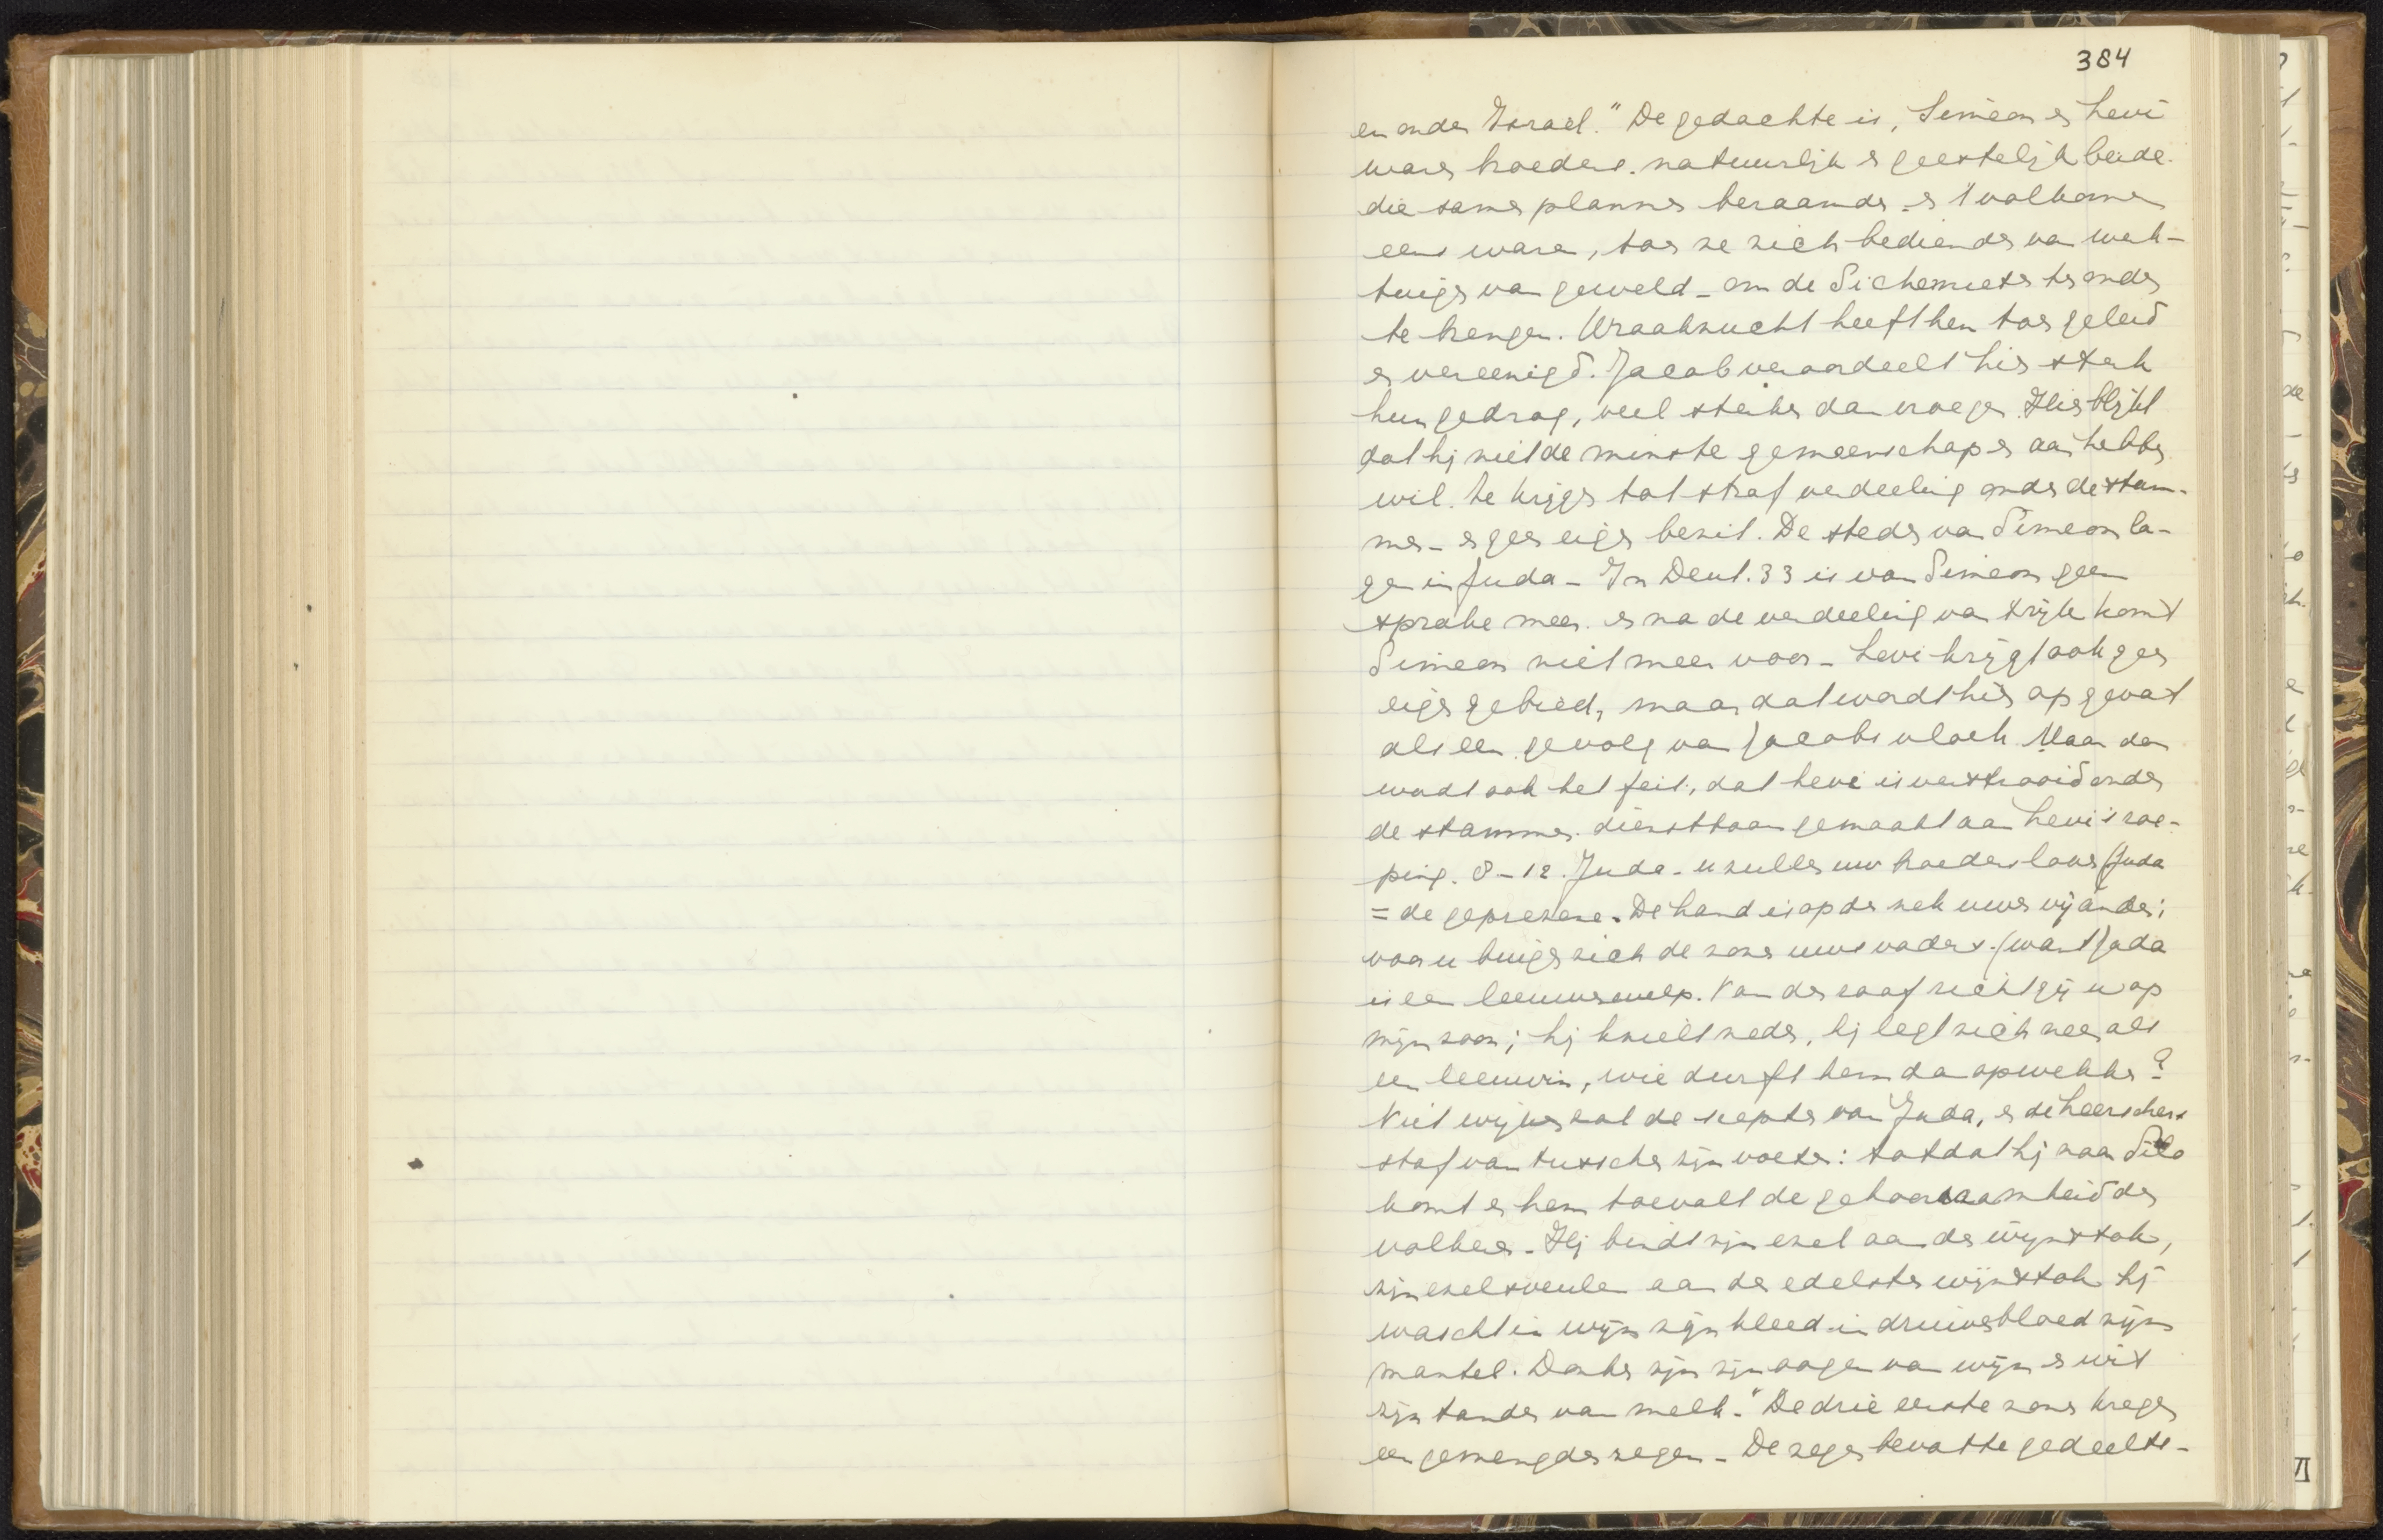 384
en onder Israel." De gedachte is, Simeon en Levi
waren broeders. natuurlijk en geestelijk beide.
die samen plannen beraamden - en 't volkomen
eens waren, toen ze zich bedienden van werk-
tuigen van geweld - om de Sichemieten ten onder
te brengen. Wraakzucht heeft hen toen geleid
en vereenigd. Jacob veroordeelt hier sterk
hun gedrag, veel sterker dan vroeger. Hier blijkt
dat hij niet de minste gemeenschap er aan hebben
wil. Ze krijgen tot straf verdeeling onder de stam-
men - en geen eigen bezit. De steden van Simeon la-
gen in Juda - In Deut. 33 is van Simeon geen
sprake meer. en na de verdeeling van 't rijk komt
Simeon niet meer voor - Levi krijgt ook geen
eigen gebied, maar dat wordt hier opgevat
als een gevolg van Jacobs vloek. Maar dan
wordt ook het feit, dat Levi is verstrooid onder
de stammen. dienstbaar gemaakt aan Levi's roe-
ping. 8-12. Juda - u zullen uw broeders loven (Juda
= de geprezene. De hand is op den nek uwer vijanden;
voor u buigen zich de zonen uws vaders. (want Juda
is een leeuwenwelp. Van den roof richt gij u op
mijn zoon; hij knielt neder, hij legt zich neer als
een leeuwin, wie durft hem dan opwekken?
Niet wijken zal de scepter van Juda, en de heerschers
staf van tusschen zijn voeten: totdat hij naar Silo
komt en hem toevalt de gehoorzaamheid der
volkeren. Hij bindt zijn ezel aan den wijnstok,
zijn ezelsveulen aan den edelsten wijnstok hij
wascht in wijn zijn kleed - in druivenbloed zijn
mantel. Donker zijn zijn oogen van wijn en wit
zijn tanden van melk." De drie eerste zonen kregen
een gemengden zegen - De zegen bevatte gedeelte-
VI